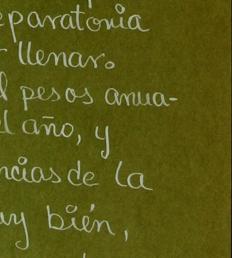 eparatoria
llenar.
l pesos anua-
l año, y
ncias de la
uy bién,